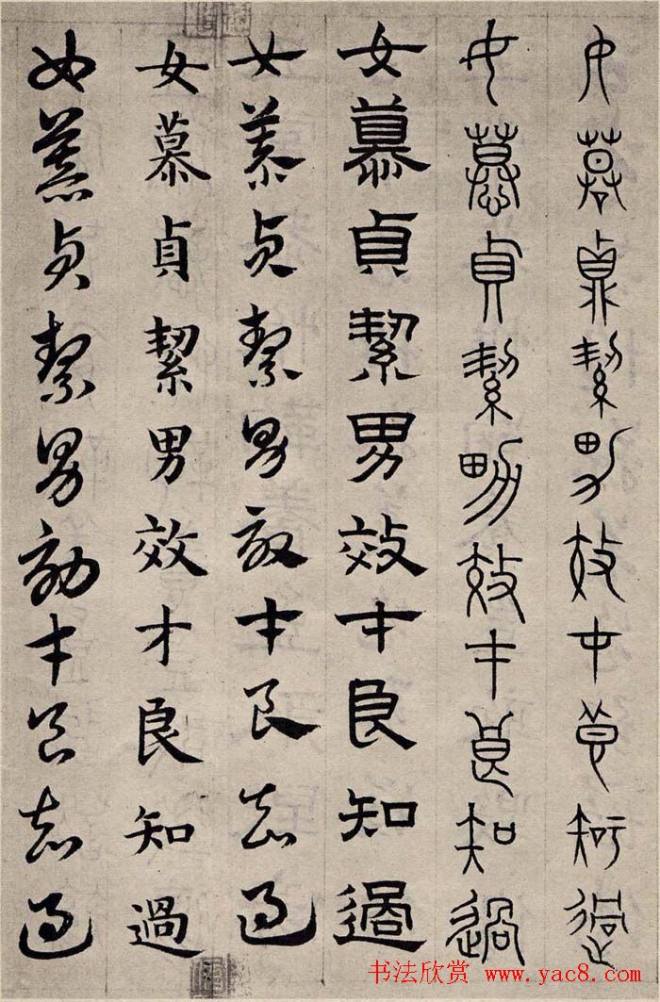 女慕貞絜男效才良知過
女慕貞絜男效才良知過
女慕貞絜男效才良知過
女慕貞絜男效才良知過
女慕貞絜男效才良知過
女慕貞絜男效才良知過
书法欣赏 www.yac8.com